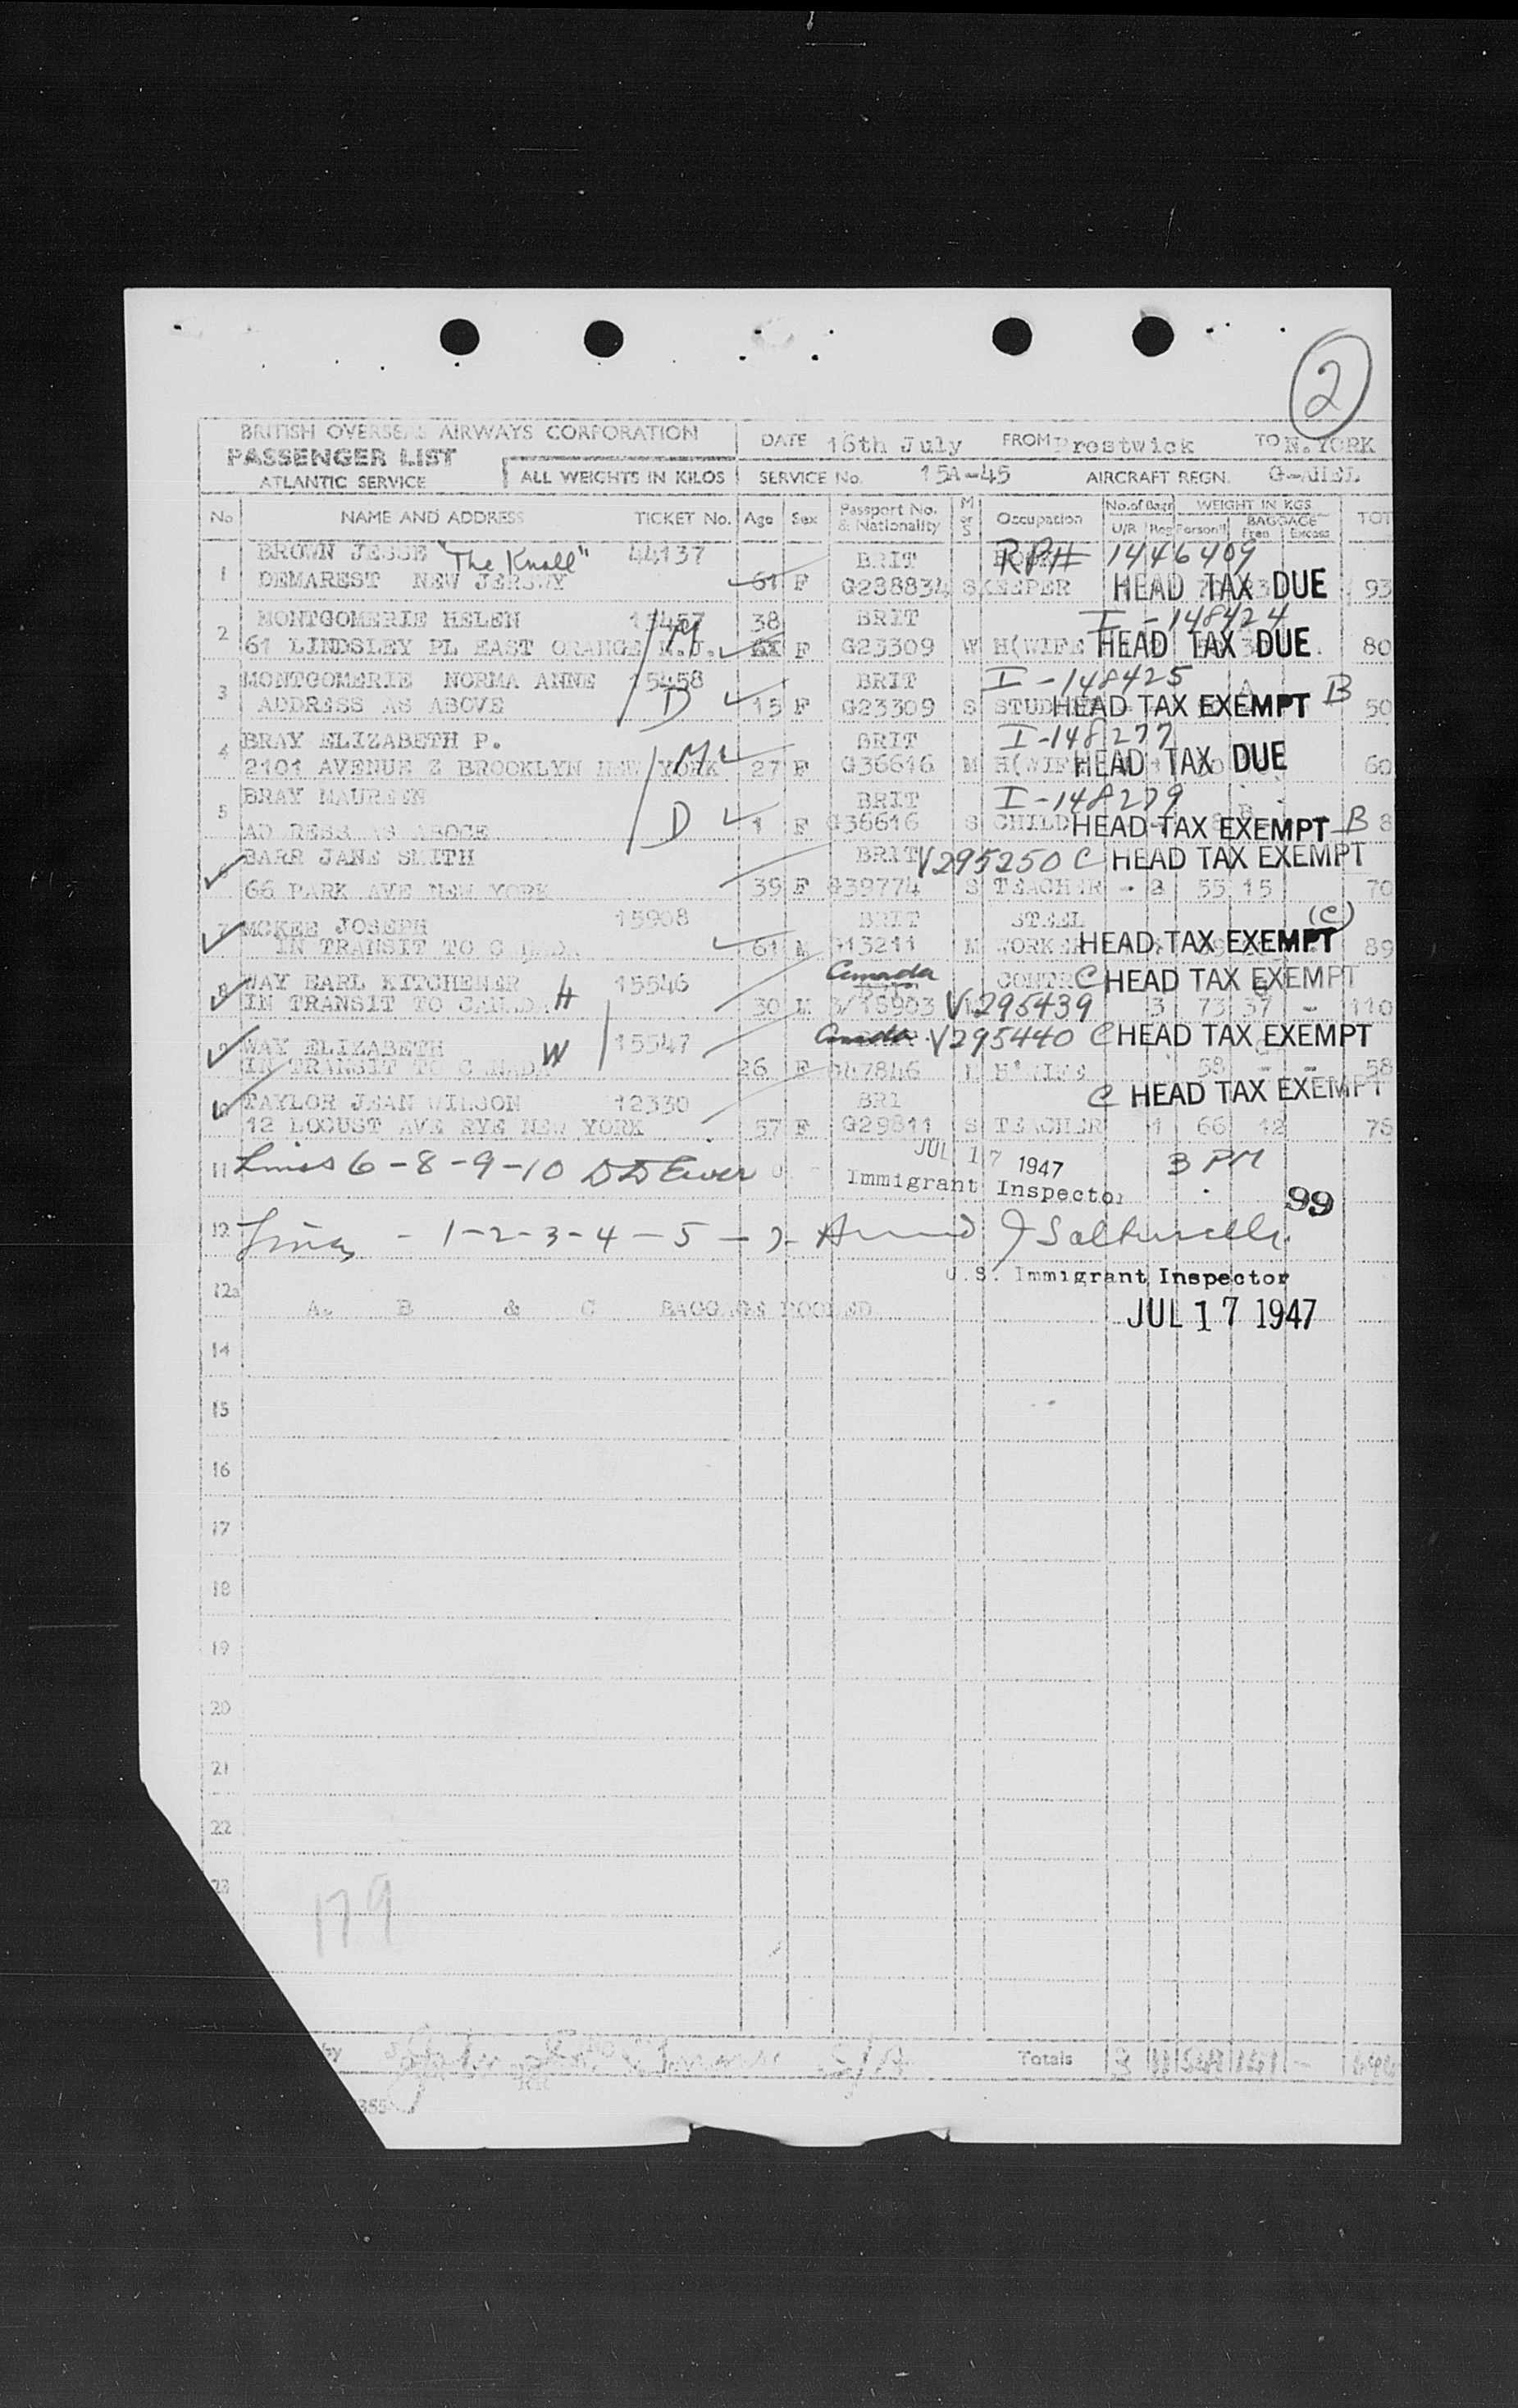 2
BRITISH OVERSEAS AIRWAYS CORPORATION
PASSENGER LIST
ATLANTIC SERVICE
ALL WEIGHTS IN KILOS
DATE 16th July FROM Prestwick TO N. YORK
SERVICE No. 15A-45 AIRCRAFT REGN.
No NAME AND ADDRESS TICKET No. Age Sex Passport No. & Nationality M or S Occupation No. of Bags U/R Reg WEIGHT IN KGS Person'l BAGGAGE Free Excess TOT
1 BROWN JESSE "The Knoll" 44137 BRIT RPH 1446409
DEMAREST NEW JERSWY 61 F G288834 S KEEPER HEAD TAX DUE 93
2 MONTGOMERIE HELEN 15457 38 BRIT I-148424
61 LINDSLEY PL EAST ORANGE N.J. M F G23309 W H(WIFE HEAD TAX DUE 80
3 MONTGOMERIE NORMA ANNE 15458 BRIT I-148425
ADDRESS AS ABOVE D 15 F G23309 S HEAD TAX EXEMPT B 50
4 BRAY ELIZABETH P. BRIT I-148277
2101 AVENUE Z BROOKLYN NEW YORK M 27 F G36616 M H(WIF HEAD TAX DUE 60
5 BRAY MAUREEN BRIT I-148279
AD RESS AS ABOCE D 1 F G36616 S CHILD HEAD TAX EXEMPT B 8
6 BARR JANE SMITH BRIT V295250 C HEAD TAX EXEMPT
66 PARK AVE NEW YORK 39 F G39774 S TEACHER - 2 55 15 70
7 MCKEE JOSEPH 15908 BRIT STEEL (C)
IN TRANSIT TO CANADA 61 M G13211 M WORKER HEAD TAX EXEMPT 89
8 WAY EARL KITCHENER 15546 Canada CONTR C HEAD TAX EXEMPT
IN TRANSIT TO CANADA H 30 M V295439 3 73 37 - 110
9 WAY ELIZABETH W 15547 Canada V295440 C HEAD TAX EXEMPT
IN TRANSIT TO CANADA 26 F G47846 M H'WIFE 58 - - 58
10 TAYLOR JEAN WILSON 12330 BRI C HEAD TAX EXEMPT
12 LOCUST AVE RYE NEW YORK 57 F G29811 S TEACHER 1 66 12 78
11 Lines 6-8-9-10 JUL 17 1947 3 PM
Immigrant Inspector 99
12 Lines - 1-2-3-4-5-7-
U.S. Immigrant Inspector
12a A. B & C BAGGAGE POOLED JUL 17 1947
14
15
16
17
18
19
20
21
22
23
179
by Totals